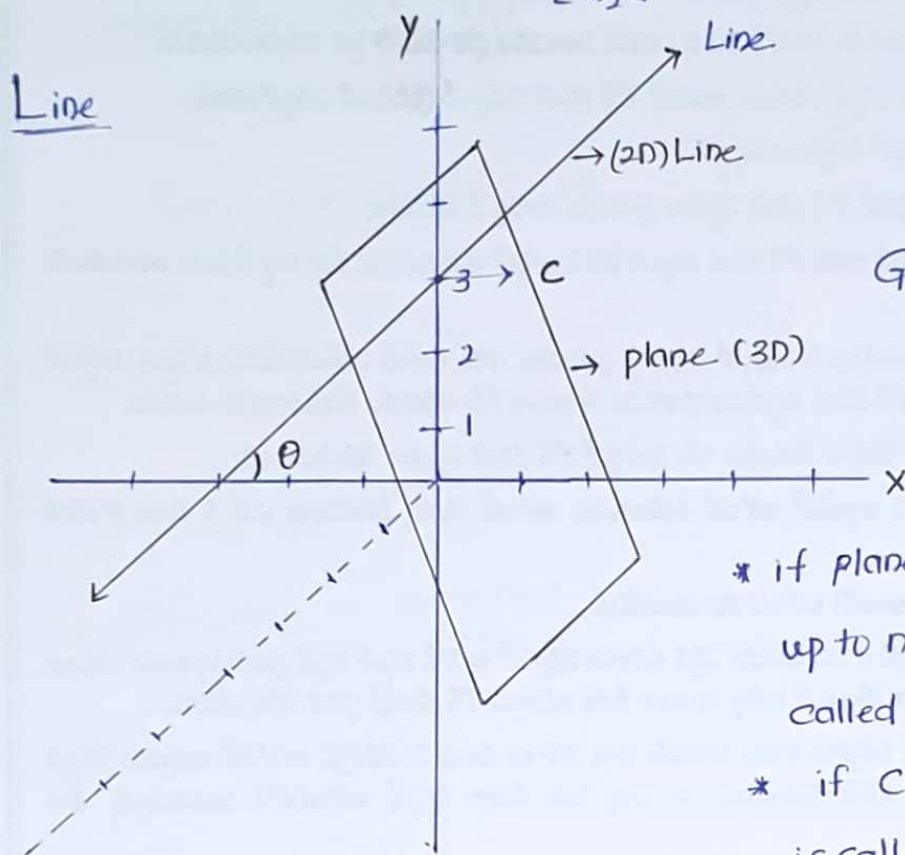 Y
Line
Line
→(2D) Line
G
3 → C
→ plane (3D)
2
1
θ
x
* if plan
up to n
called
* if C
is call